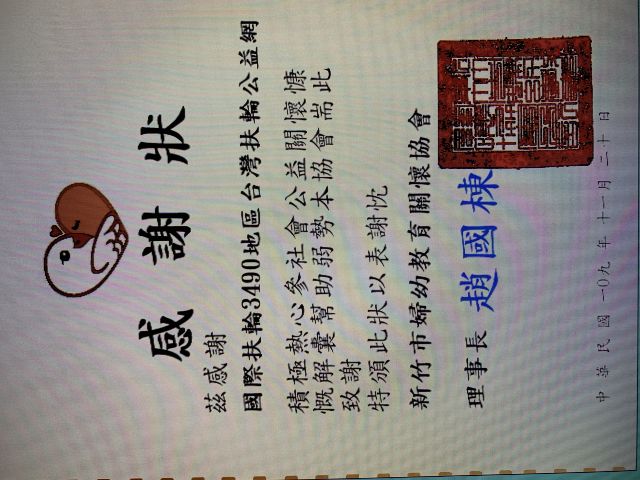 感謝狀
茲感謝
國際扶輪3490地區台灣扶輪公益網
積極熱心參社會公益關懷慷
慨解囊幫助弱勢本協會耑此
致謝
特頒此狀以表謝忱
新竹市婦幼教育關懷協會
理事長 趙國棟
中華民國一0九年十一月二十日